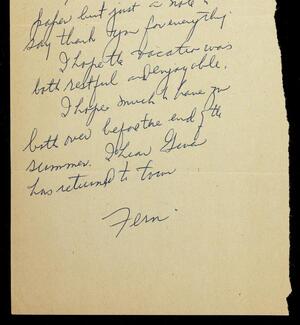 paper but just a note to
say thank you for everything.
I hope the vacation was
both restful and enjoyable.
I hope much to have you
both over before the end of the
summer. I hear
has returned to town
Fern